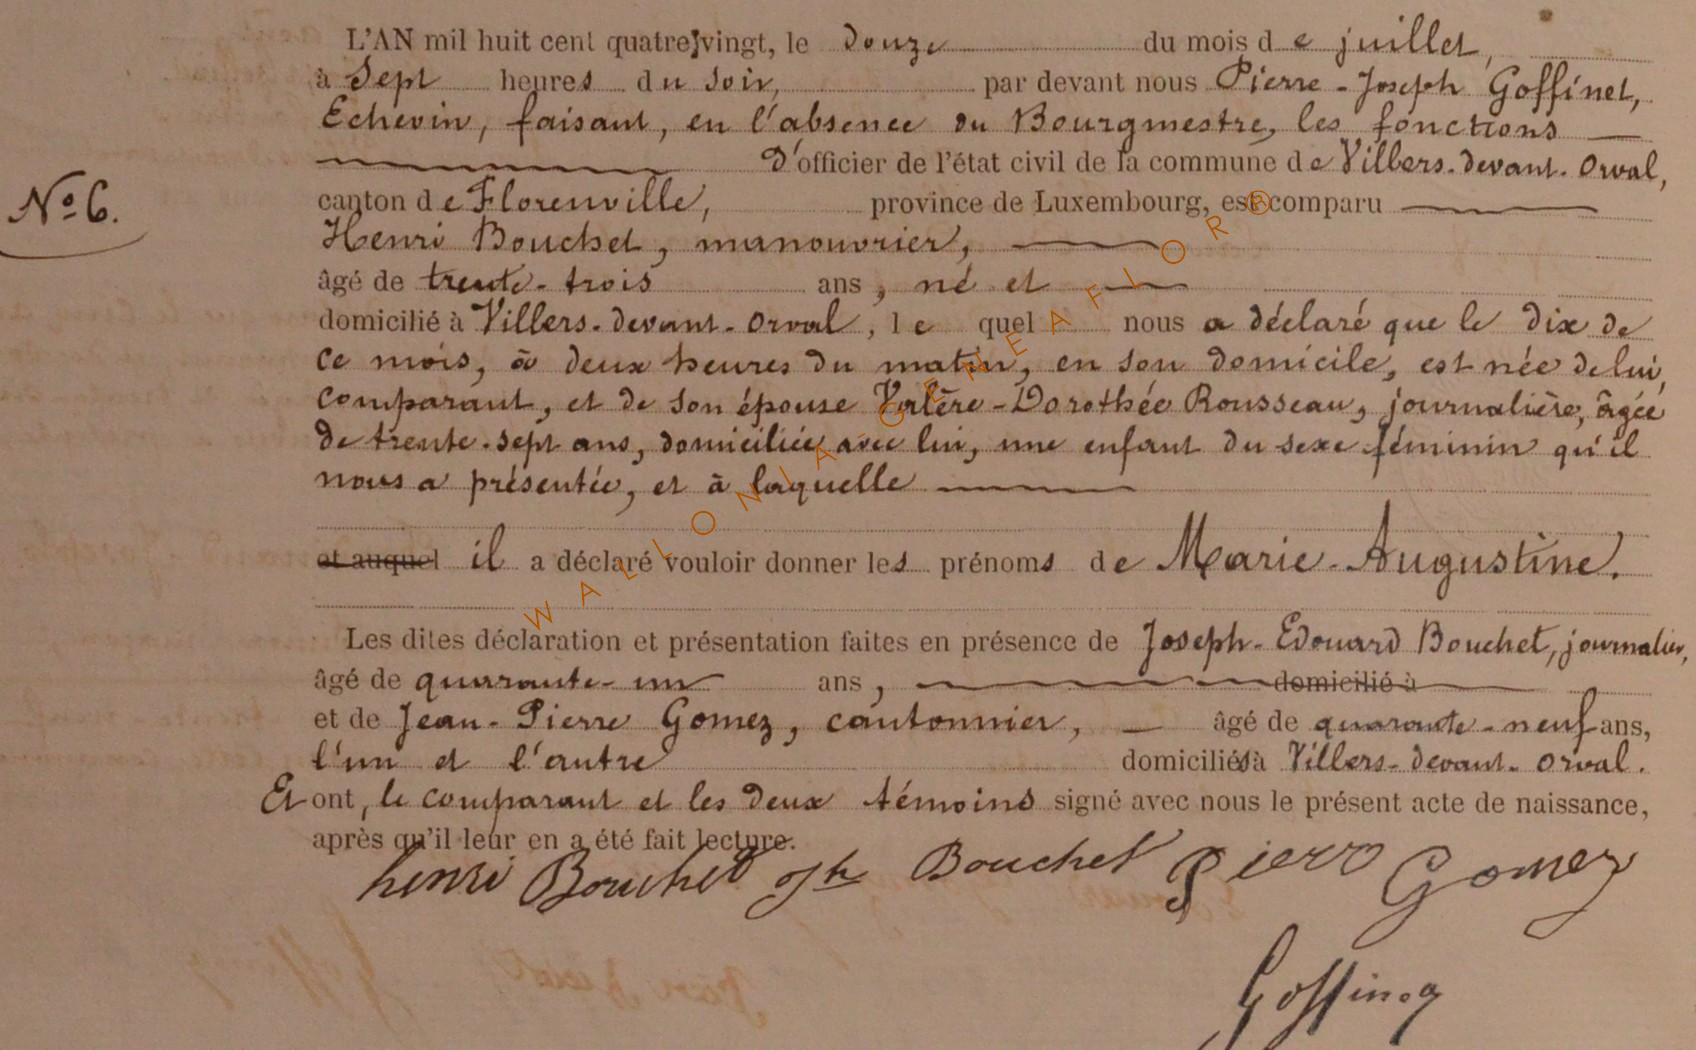 L'AN mil huit cent quatre-vingt, le douze du mois de juillet,
à sept heures du soir, par devant nous Pierre-Joseph Goffinet,
Echevin, faisant, en l'absence du Bourgmestre, les fonctions
d'officier de l'état civil de la commune de Villers-devant-Orval,
N° 6.
canton de Florenville, province de Luxembourg, est comparu
Henri Bouchet, manouvrier,
âgé de trente-trois ans, né et
domicilié à Villers-devant-Orval, lequel nous a déclaré que le dix de
ce mois, à deux heures du matin, en son domicile, est née de lui,
comparant, et de son épouse Valère-Dorothée Rousseau, journalière, âgée
de trente-sept ans, domiciliée avec lui, une enfant du sexe féminin qu'il
nous a présentée, et à laquelle
et auquel il a déclaré vouloir donner les prénoms de Marie-Augustine.
Les dites déclaration et présentation faites en présence de Joseph-Edouard Bouchet, journalier,
âgé de quarante-un ans, domicilié à
et de Jean-Pierre Gomez, cantonnier, âgé de quarante-neuf ans,
l'un et l'autre domiciliés à Villers-devant-Orval.
Et ont, le comparant et les deux témoins signé avec nous le présent acte de naissance,
après qu'il leur en a été fait lecture.
henri Bouchet Bouchet Gomez
WALLONIA GENEAFLORE